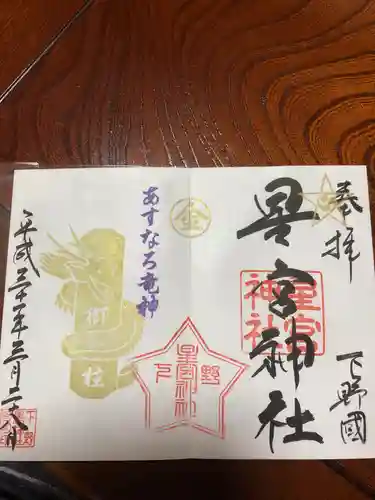 奉拝
下野國
星宮神社
星宮
神社
金
あすなろ竜神
下野
星宮神社
御柱
平成三十一年三月二十八日